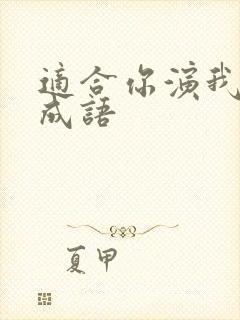 適合你演我猜
成語
夏甲